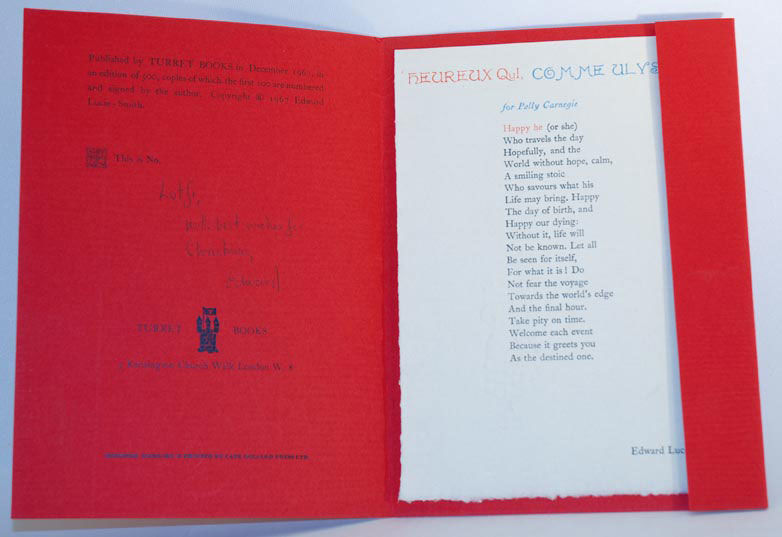 Published by TURRET BOOKS in December 1967 in
an edition of 500, copies of which the first 100 are numbered
and signed by the author. Copyright © 1967 Edward
Lucie-Smith.
This is No.
with best wishes for
Christmas,
Edward
TURRET BOOKS
Kensington Church Walk London W. 8
'HEUREUX QUI, COMME ULYS
for Polly Carnegie
Happy he (or she)
Who travels the day
Hopefully, and the
World without hope, calm,
A smiling stoic
Who savours what his
Life may bring. Happy
The day of birth, and
Happy our dying:
Without it, life will
Not be known. Let all
Be seen for itself,
For what it is! Do
Not fear the voyage
Towards the world's edge
And the final hour.
Take pity on time.
Welcome each event
Because it greets you
As the destined one.
Edward Luc